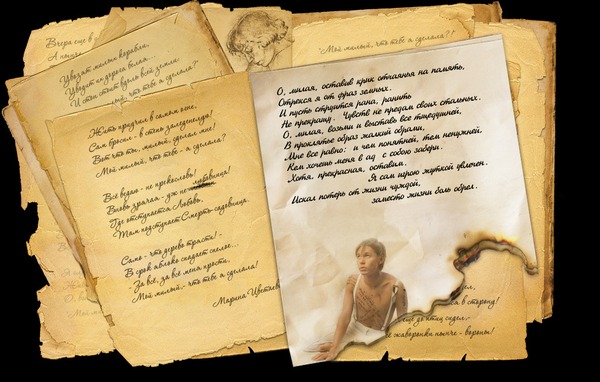 Вчера ещё в
А нынче
Увозят милых корабли,
Уводит их дорога белая...
И стон стоит вдоль всей земли:
милый, что тебе я сделала?"
"Мой милый, что тебе я сделала?!
Жить приучил в самом огне,
Сам бросил - в степь заледенелую!
Вот что ты, милый, сделал мне!
Мой милый, что тебе - я сделала?
Всё ведаю - не прекословь!
Вновь зрячая - уж не любовница!
Где отступается Любовь,
Там подступает Смерть-садовница.
Само - что дерево трясти! -
В срок яблоко спадает спелое...
- За всё, за всё меня прости,
Мой милый,- что тебе я сделала!
Марина Цветаева
О, милая, оставив крик отчаянья на память,
Отрекся я от фраз земных.
И пусть струится рана, ранить
Не прекращу. Чувств не предам своих стальных.
О, милая, возьми и выставь все тщедушней,
В проклятые образ жалкий обрами,
Мне все равно: и чем понятней, тем ненужней.
Кем хочешь меня в ад с собою забери.
Хотя, прекрасная, оставим.
Я сам игрою жуткой увлечен.
Искал потерь от жизни чуждой,
заместо жизни боль обрел.
сел,
в сторону!
ещё до птиц сидел,-
жаворонки нынче - вороны!